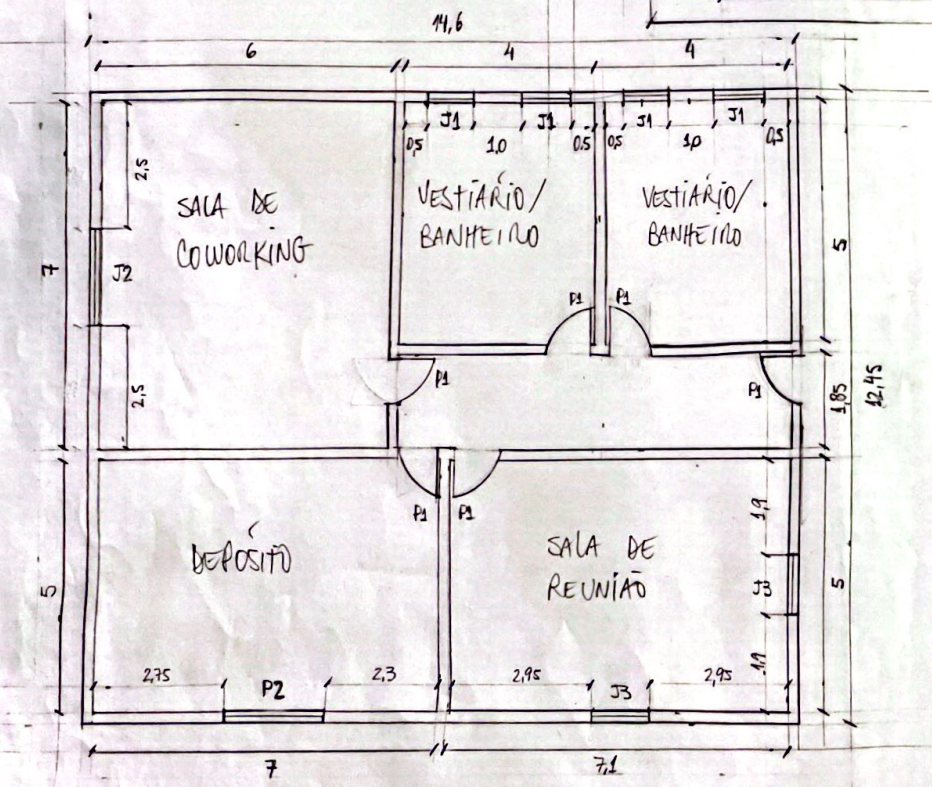 14,6
6
4
4
J1
J1
J1
J1
0,5
1,0
0,5
0,5
1,0
0,5
2,5
SALA DE
COWORKING
VESTIÁRIO/
BANHEIRO
VESTIÁRIO/
BANHEIRO
7
J2
5
P1
P1
2,5
P1
P1
1,85
12,45
P1
P1
1,9
DEPÓSITO
SALA DE
REUNIÃO
5
J3
5
2,75
P2
2,3
2,95
J3
2,95
1,9
7
7,1